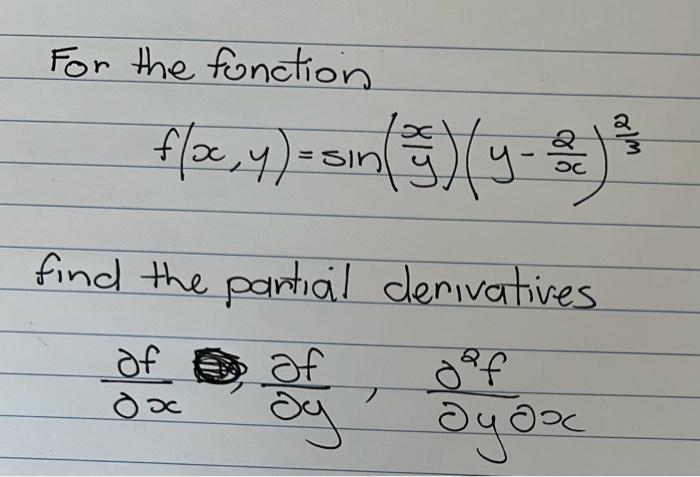 For the fonction
f(x,y)=sin(x/y)(y-2/x)^2/3
find the partial derivatives
∂f/∂x, ∂f/∂y, ∂²f/∂y∂x